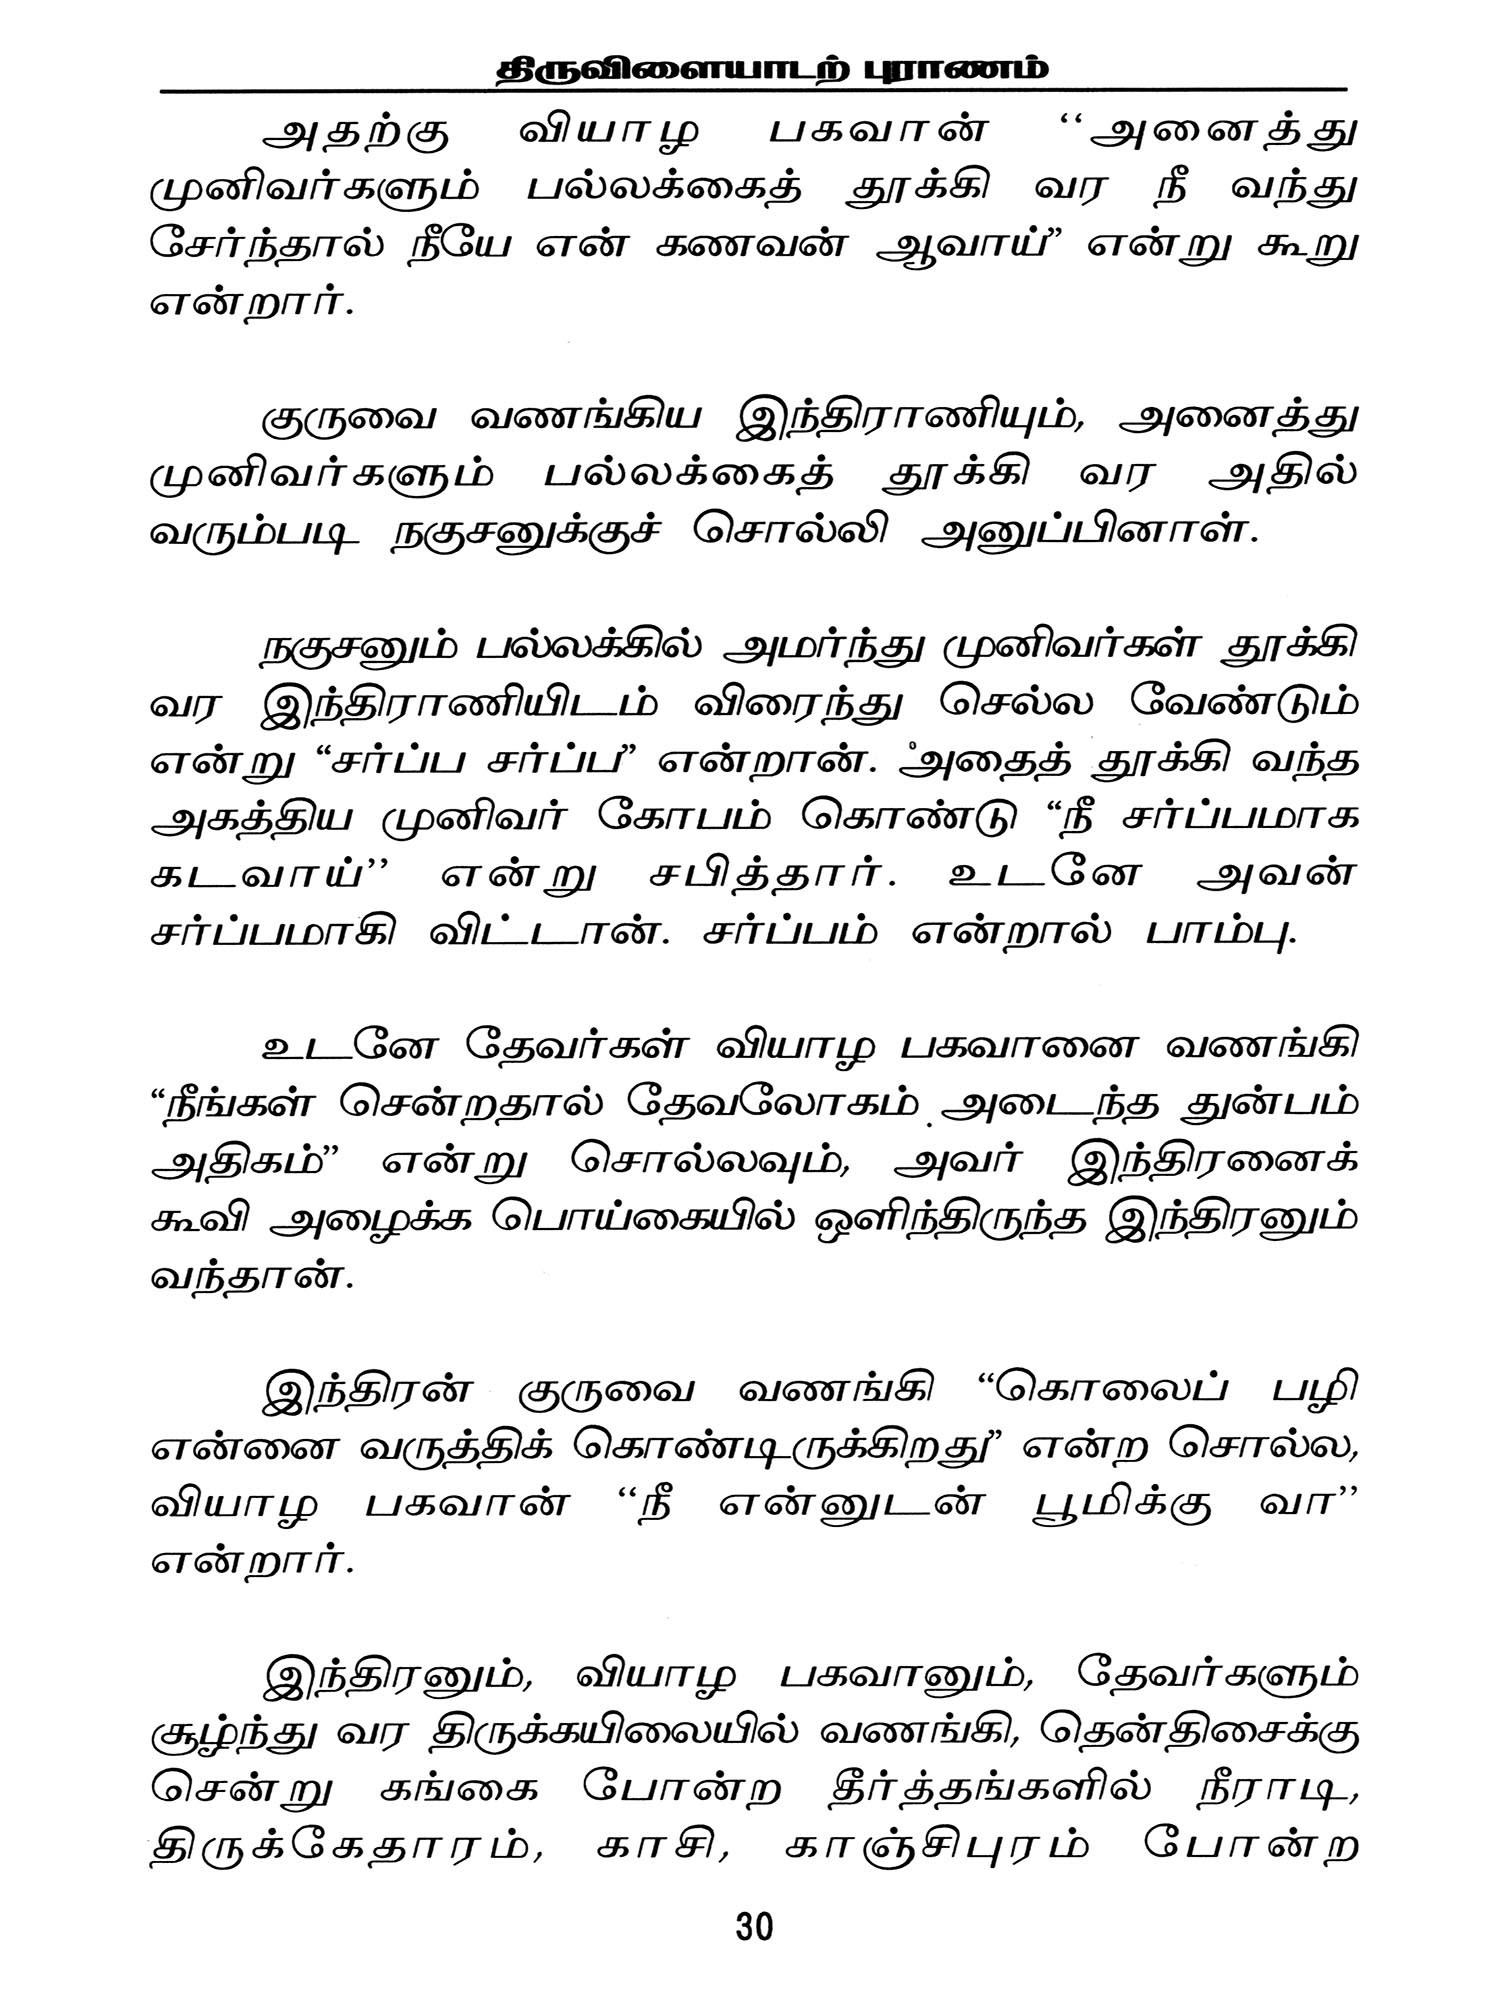 திருவிளையாடற் புராணம்
அதற்கு வியாழ பகவான் ‘‘அனைத்து
முனிவர்களும் பல்லக்கைத் தூக்கி வர நீ வந்து
சேர்ந்தால் நீயே என் கணவன் ஆவாய்” என்று கூறு
என்றார்.
குருவை வணங்கிய இந்திராணியும், அனைத்து
முனிவர்களும் பல்லக்கைத் தூக்கி வர அதில்
வரும்படி நகுசனுக்குச் சொல்லி அனுப்பினாள்.
நகுசனும் பல்லக்கில் அமர்ந்து முனிவர்கள் தூக்கி
வர இந்திராணியிடம் விரைந்து செல்ல வேண்டும்
என்று “சர்ப்ப சர்ப்ப” என்றான். அதைத் தூக்கி வந்த
அகத்திய முனிவர் கோபம் கொண்டு “நீ சர்ப்பமாக
கடவாய்’’ என்று சபித்தார். உடனே அவன்
சர்ப்பமாகி விட்டான். சர்ப்பம் என்றால் பாம்பு.
உடனே தேவர்கள் வியாழ பகவானை வணங்கி
“நீங்கள் சென்றதால் தேவலோகம் அடைந்த துன்பம்
அதிகம்” என்று சொல்லவும், அவர் இந்திரனைக்
கூவி அழைக்க பொய்கையில் ஒளிந்திருந்த இந்திரனும்
வந்தான்.
இந்திரன் குருவை வணங்கி “கொலைப் பழி
என்னை வருத்திக் கொண்டிருக்கிறது” என்ற சொல்ல,
வியாழ பகவான் ‘‘நீ என்னுடன் பூமிக்கு வா’’
என்றார்.
இந்திரனும், வியாழ பகவானும், தேவர்களும்
சூழ்ந்து வர திருக்கயிலையில் வணங்கி, தென்திசைக்கு
சென்று கங்கை போன்ற தீர்த்தங்களில் நீராடி,
திருக்கேதாரம், காசி, காஞ்சிபுரம் போன்ற
30